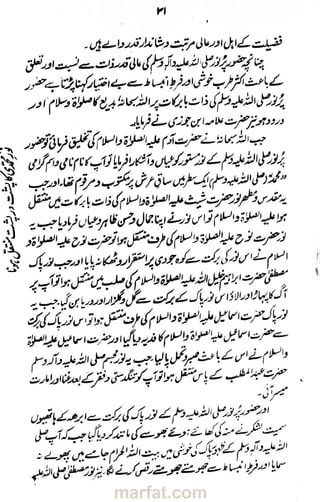 ۳۱
فضیلت کے اہل اور عالی مرتبت و شاندار قدر والے ہیں۔
چنانچہ حضور پُر نور صلی اللہ علیہ وآلہ وسلم کی عالی قدر ذات سے نسبت اور تعلق
کے باعث اکثر طرب خوشی اور فرط انبساط سے بے اختیار کہنا پڑتا ہے حضور
پُر نور صلی اللہ علیہ وسلم کی ذات بابرکات پر اللہ سبحانہٗ بدیع کا صلوٰۃ وسلام اور
درود ہو نیز حضرت علامہ ابن جوزی نے فرمایا۔
جب اللہ سبحانہٗ نے حضرت آدم علیہ الصلوٰۃ والسلام کی تخلیق فرمائی تو حضور
پُر نور صلی اللہ علیہ وسلم کے نور مستور کو عیاں و آشکارا فرمایا تو آپ کا نام نامی و اسم گرامی
"محمد (صلی اللہ علیہ وسلم)" ایک سطر میں ساق عرش پر مکتوب و مرقوم تھا۔ اور جب
یہ مقدس و مطہر نور حضرت شیث علیہ الصلوٰۃ والسلام کی ذات بابرکات میں منتقل
ہوا علیہ الصلوٰۃ والسلام تو اس نور نے اپنا جمال و حسن ظاہر و عیاں فرما دیا جب یہ
نور حضرت نوح علیہ الصلوٰۃ والسلام کی طرف منتقل ہوا تو حضرت نوح علیہ الصلوٰۃ و
السلام نے اس نور کی برکت سے کوہ جودی پر استقرار و ٹھکانہ پایا اور جب نور پاک
مصطفیٰ حضرت ابراہیم خلیل اللہ علیہ الصلوٰۃ والسلام کی صلب میں منتقل ہوا تو آپ پر
آگ کا پہاڑ اور الاؤ اس نور پاک کے برکت سے گل و گلزار اور دریا بن گیا۔ جب یہ
نور پاک حضرت اسماعیل علیہ الصلوٰۃ والسلام کی طرف منتقل ہوا تو اس نور پاک کی برکت
سے حضرت اسماعیل علیہ الصلوٰۃ والسلام کا فدیہ دیا گیا اور حضرت اسماعیل علیہ الصلوٰۃ
والسلام نے اس کے باعث صبر و تحمل پالیا جب یہ نور مجسم صلی اللہ علیہ وآلہ وسلم
حضرت عبد المطلب کے پاس منتقل ہوا تو آپ کو تنگدستی و فقر کے بعد غنا اور امارت
میسر آئی۔
اور حضور پُر نور صلی اللہ علیہ وسلم کے نور پاک کی برکت سے ابرھہ کے ہاتھیوں
سمیت لشکر نے منہ کی کھائی ہوئے بھوسے کی مانند کر دیا گیا جب کہ آپ صلی
اللہ علیہ وآلہ وسلم کے پاک کی خوشی میں بیت اللہ الحرام جامے میں پھولے نہ
سمایا اور فرط انبساط سے جھومتے جھومتے رقص کرنے لگا۔ نیز نور مصطفیٰ صلی اللہ علیہ
نور محمدی کا پشت در پشت منتقل ہونا
marfat.com